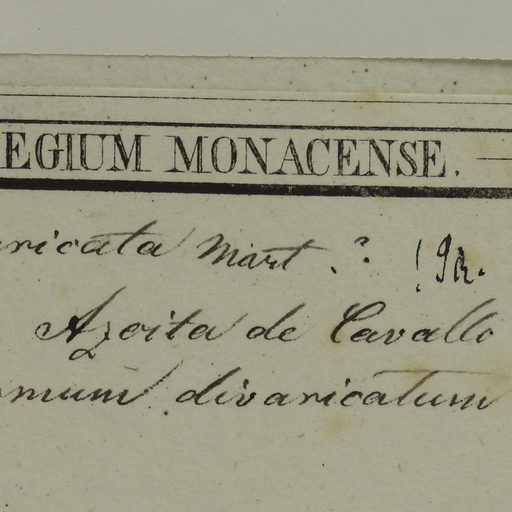 EGIUM MONACENSE.
aricata Mart. ? !
Azoita de Cavallo
mum divaricatum